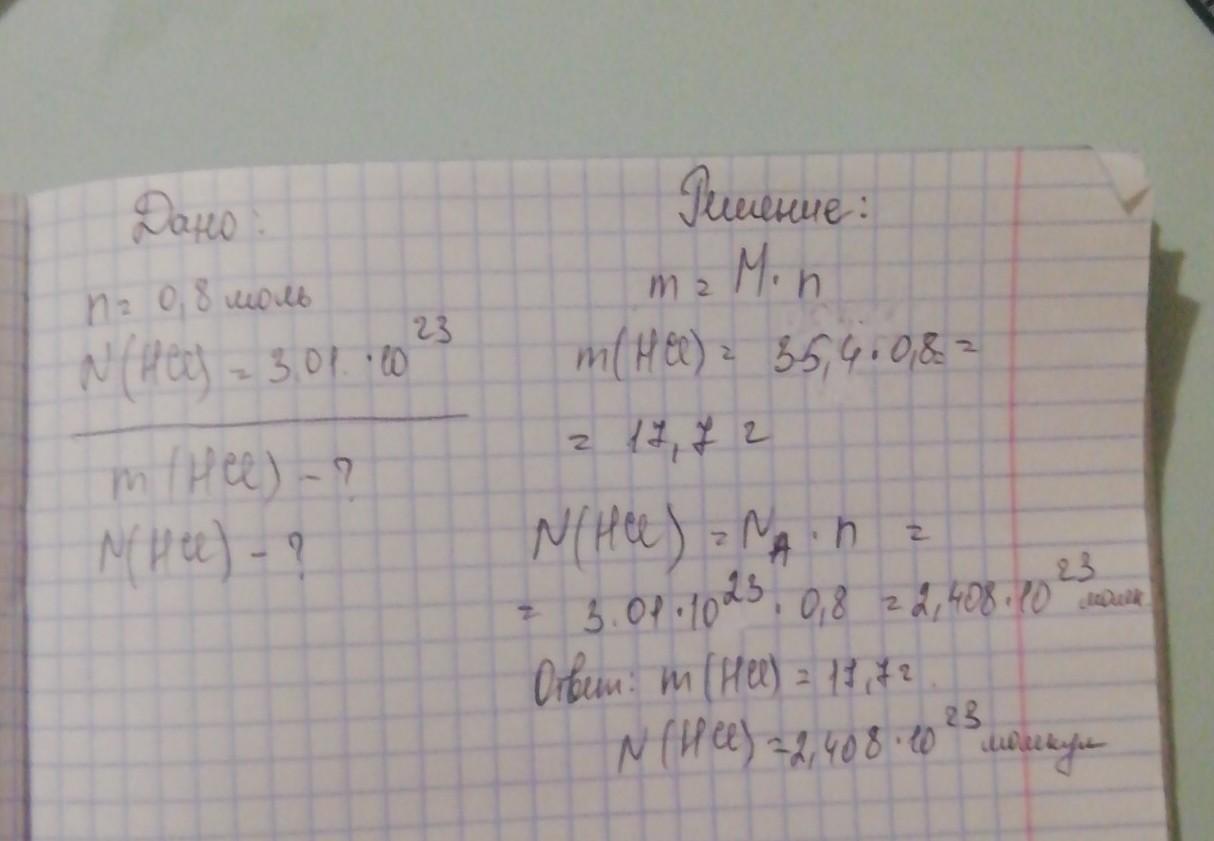 Дано:
n = 0,8 моль
N(HCl) = 3.01 · 10²³
m(HCl) - ?
N(HCl) - ?
Решение:
m = M · n
m(HCl) = 35,4 · 0,8 =
= 17,7 г
N(HCl) = N_A · n =
= 3.01 · 10²³ · 0,8 = 2,408 · 10²³ молек
Ответ: m(HCl) = 17,7 г.
N(HCl) = 2,408 · 10²³ молекул